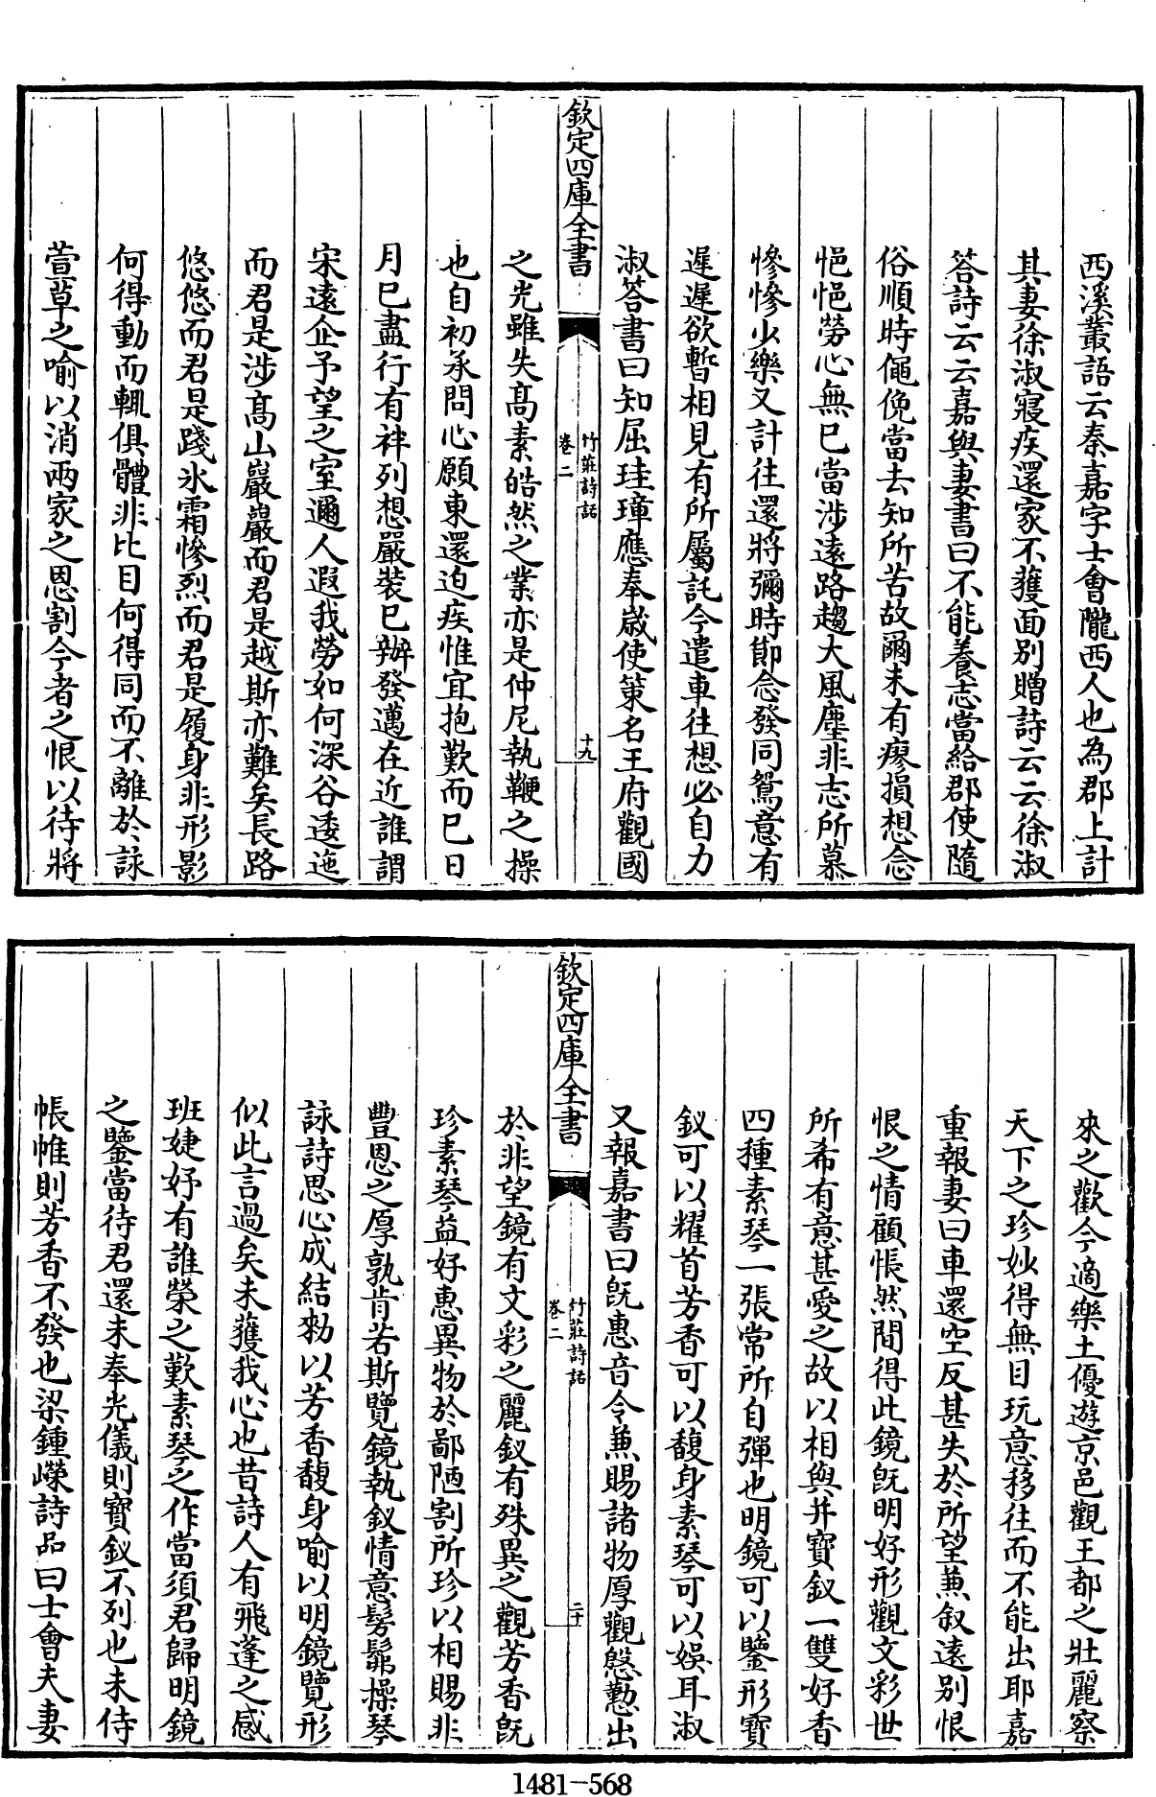 西溪叢語云秦嘉字士會隴西人也為郡上計
其妻徐淑寢疾還家不獲面別贈詩云云徐淑
答詩云云嘉與妻書曰不能養志當給郡使隨
俗順時僶俛當去知所苦故爾未有瘳損想念
悒悒勞心無已當涉遠路趨大風塵非志所慕
慘慘少樂又計往還將彌時節念發同鴛意有
遲遲欲暫相見有所屬託今遣車往想必自力
淑答書曰知屈珪璋應奉歲使策名王府觀國
欽定四庫全書
竹莊詩話
卷二
十九
之光雖失高素皓然之業亦是仲尼執鞭之操
也自初承問心願東還迫疾惟宜抱歎而已日
月已盡行有祥列想嚴裝已辦發邁在近誰謂
宋遠企予望之室邇人遐我勞如何深谷逶迤
而君是涉高山巖巖而君是越斯亦難矣長路
悠悠而君是踐氷霜慘烈而君是履身非形影
何得動而輒俱體非比目何得同而不離於詠
萱草之喻以消兩家之恩割今者之恨以待將
來之歡今適樂土優遊京邑觀王都之壯麗察
天下之珍妙得無目玩意移往而不能出耶嘉
重報妻曰車還空反甚失於所望兼叙遠別恨
恨之情顧悵然間得此鏡旣明好形觀文彩世
所希有意甚愛之故以相與并寶釵一雙好香
四種素琴一張常所自彈也明鏡可以鑒形寶
釵可以耀首芳香可以馥身素琴可以娛耳淑
又報嘉書曰旣惠音令兼賜諸物厚觀慇懃出
欽定四庫全書
竹莊詩話
卷二
二十
於非望鏡有文彩之麗釵有殊異之觀芳香旣
珍素琴益好惠異物於鄙陋割所珍以相賜非
豐恩之厚孰肯若斯覽鏡執釵情意髣髴操琴
詠詩思心成結勑以芳香馥身喻以明鏡覽形
似此言過矣未獲我心也昔詩人有飛蓬之感
班婕妤有誰榮之歎素琴之作當須君歸明鏡
之鑒當待君還未奉光儀則寶釵不列也未侍
帳帷則芳香不發也梁鍾嶸詩品曰士會夫妻
1481-568